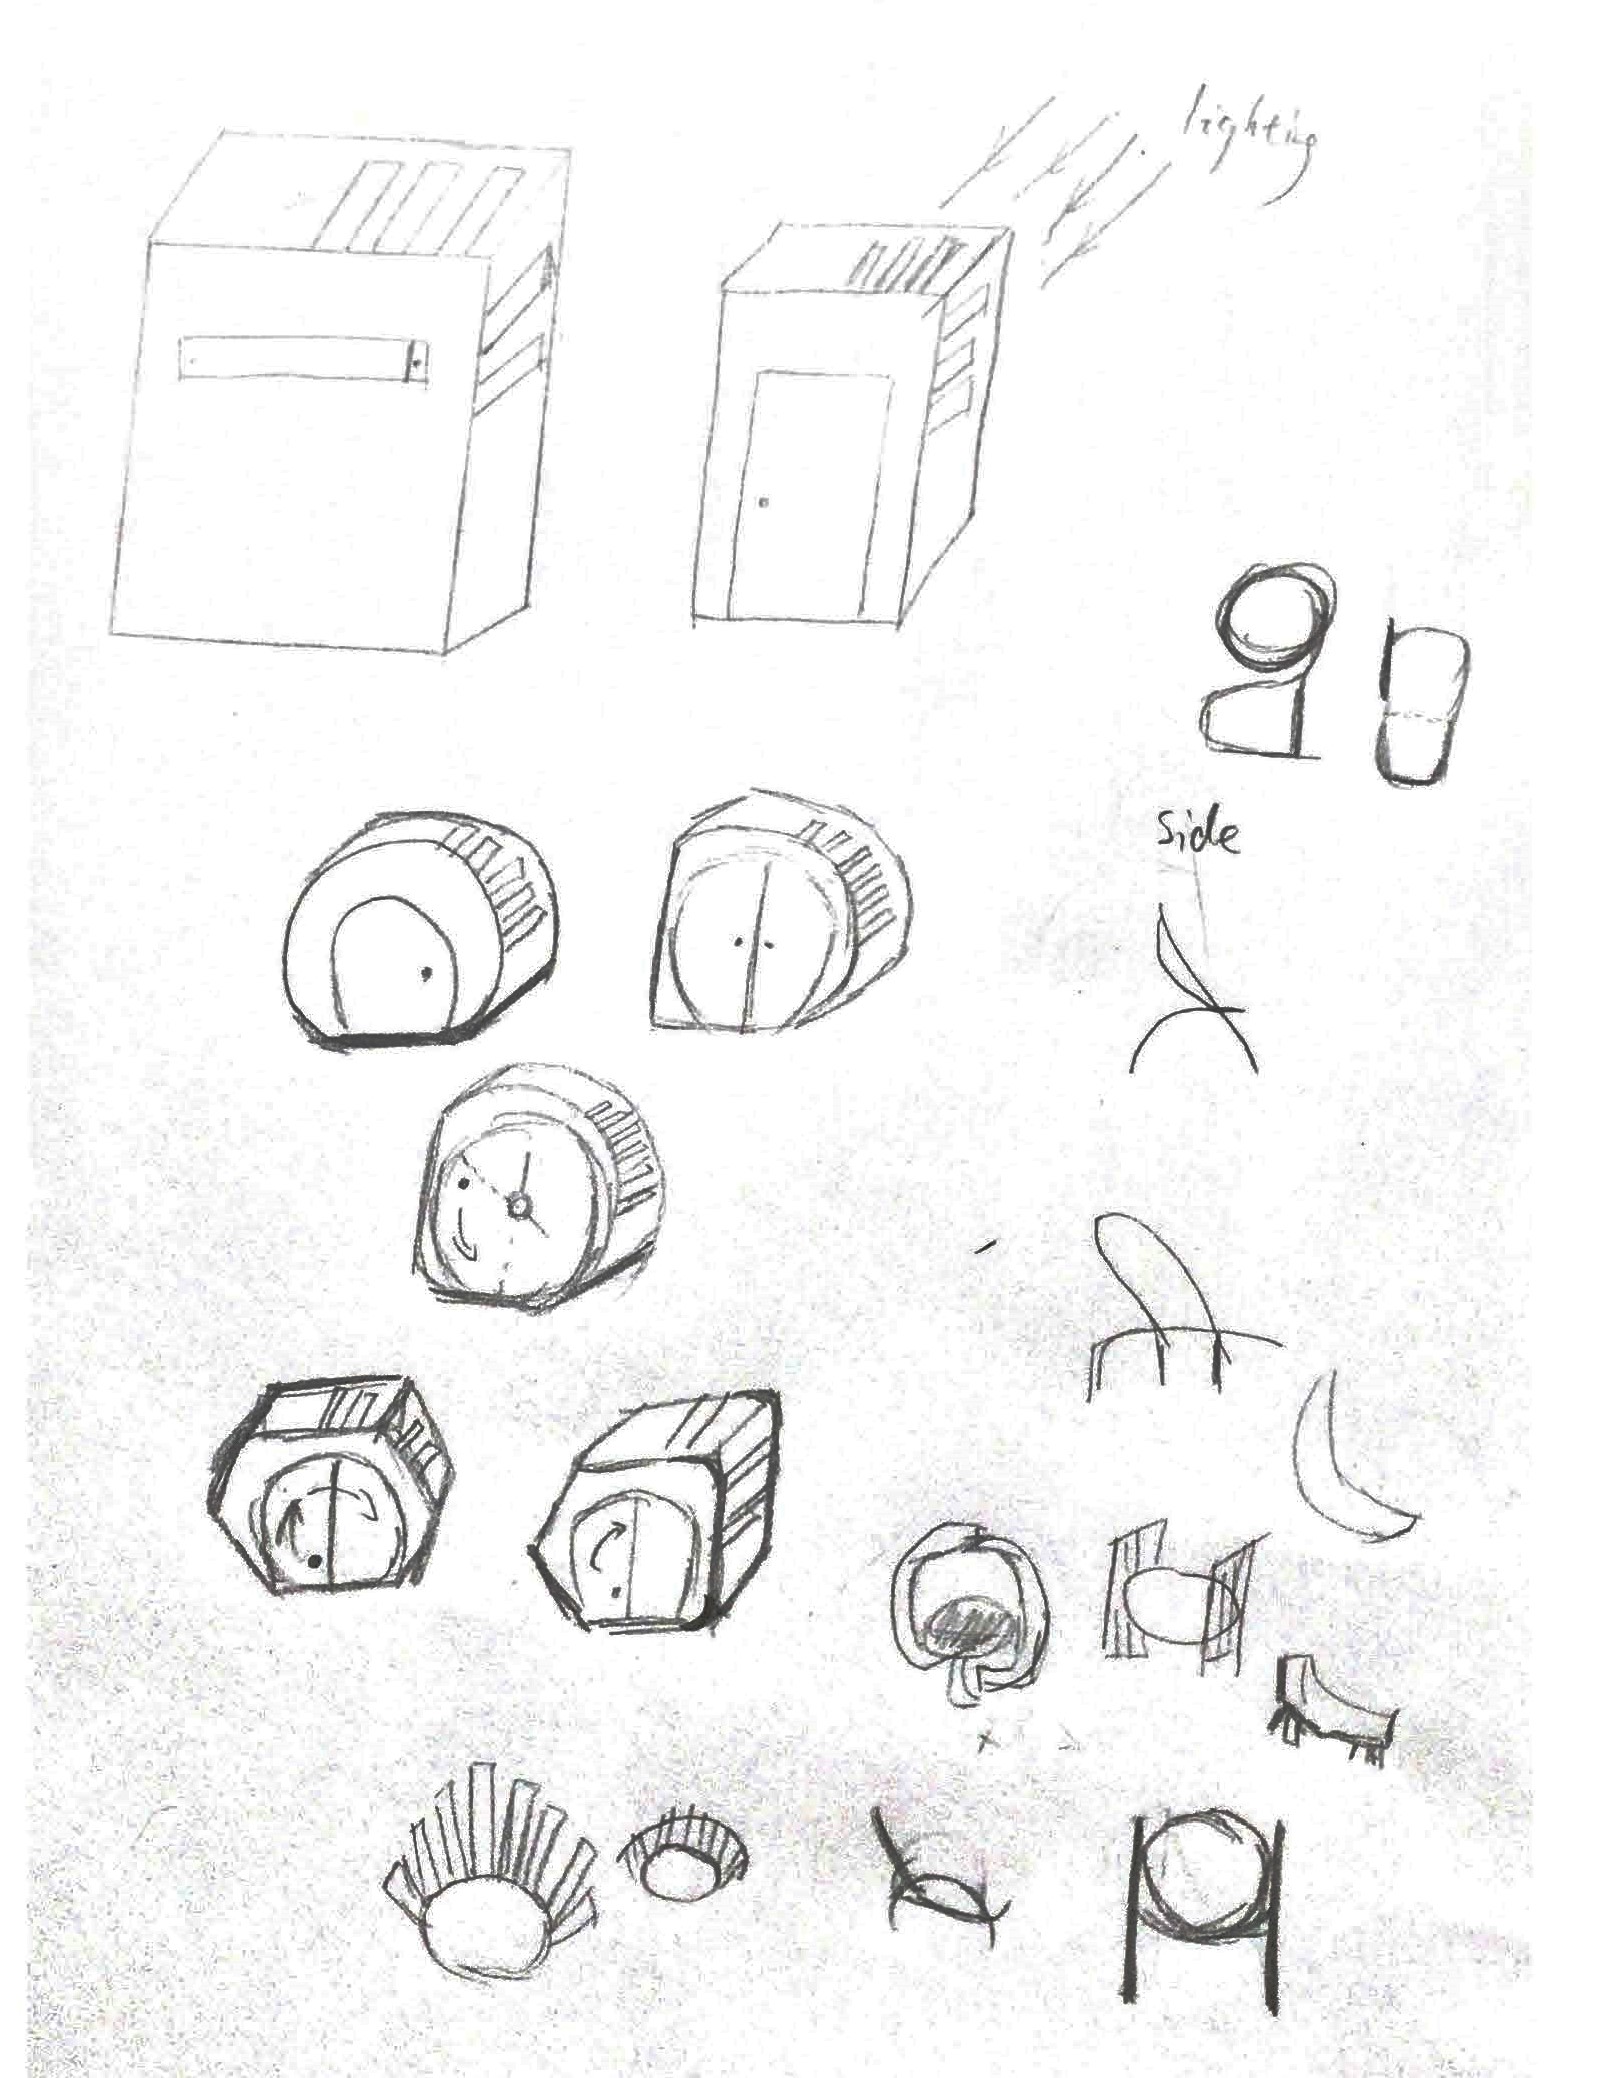 lighting
side